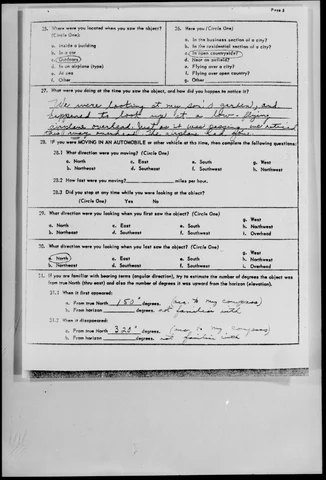 Page 2
25. Where were you located when you saw the object?
(Circle One)
a. Inside a building
b. In a car
c. Outdoors
d. In an airplane (type)
e. At sea
f. Other
26. Were you (Circle One)
a. In the business section of a city?
b. In the residential section of a city?
c. In open countryside?
d. Near an airfield?
e. Flying over a city?
f. Flying over open country?
g. Other
27. What were you doing at the time you saw the object, and how did you happen to notice it?
We were looking at my son's garden, and
happened to look up at a low-flying
airplane overhead. Just as it was passing, we noticed
28. If you were MOVING IN AN AUTOMOBILE or other vehicle at the time, then complete the following questions:
28.1 What direction were you moving? (Circle One)
a. North c. East e. South g. West
b. Northeast d. Southeast f. Southwest h. Northwest
28.2 How fast were you moving? miles per hour.
28.3 Did you stop at any time while you were looking at the object?
(Circle One) Yes No
29. What direction were you looking when you first saw the object? (Circle One)
a. North c. East e. South g. West
b. Northeast d. Southeast f. Southwest h. Northwest
i. Overhead
30. What direction were you looking when you last saw the object? (Circle One)
a. North c. East e. South g. West
b. Northeast d. Southeast f. Southwest h. Northwest
i. Overhead
31. If you are familiar with bearing terms (angular direction), try to estimate the number of degrees the object was
from true North (thru east) and also the number of degrees it was upward from the horizon (elevation).
31.1 When it first appeared:
a. From true North 150° degrees. to my compass)
b. From horizon degrees. not familiar with
31.2 When it disappeared:
a. From true North 320° degrees. to my compass)
b. From horizon degrees. not familiar with